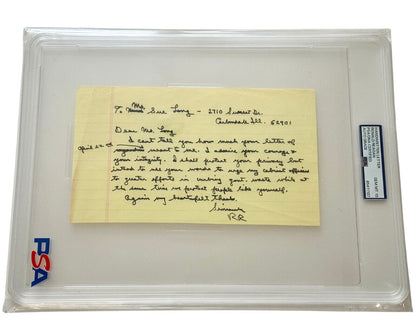 To Ms. Sue Long - 2710 Sunset Dr.
Carbondale Ill. 62901
April 22
Dear Ms. Long
I can't tell you how much your letter of
meant to me. I admire your courage &
your integrity. I shall protect your privacy but
intend to use your words to urge my cabinet officers
to greater efforts in cutting govt. waste while at
the same time we protect people like yourself.
Again my heartfelt thanks.
Sincerely
RR
PSA